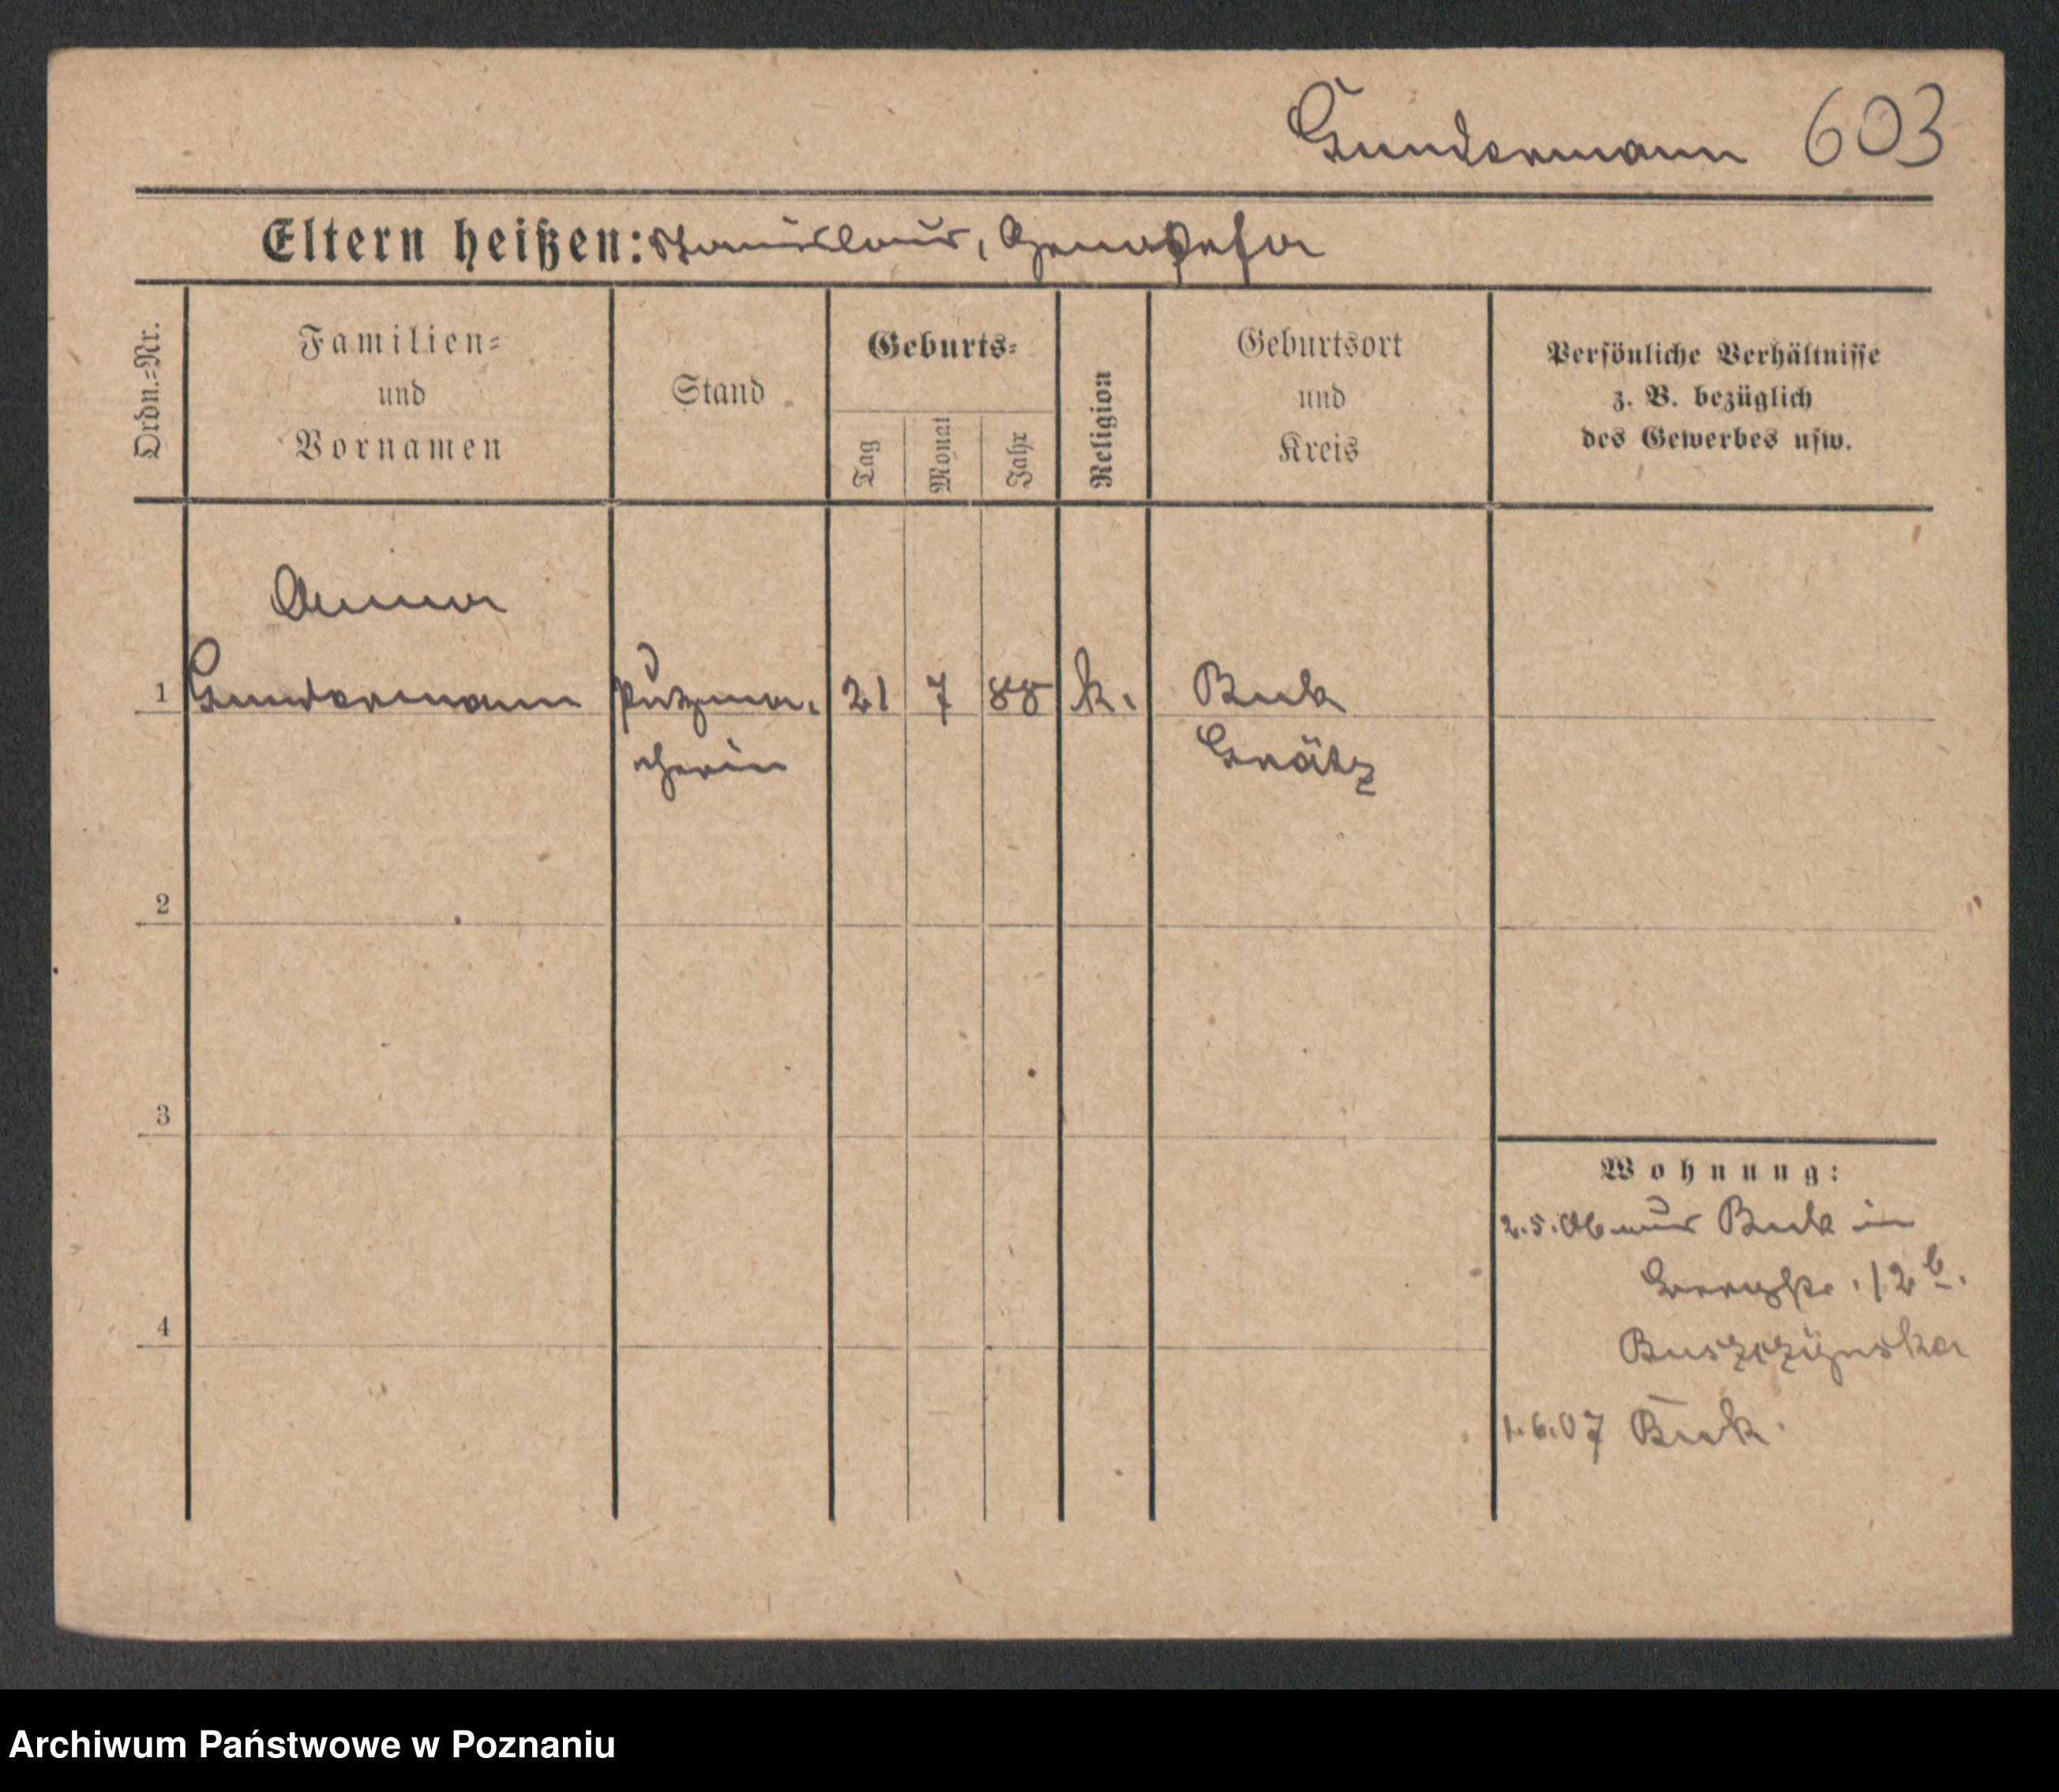 Gundermann 603
Eltern heißen: Stanislaus, Genofefa
Ordn.=Nr.
Familien=
und
Vornamen
Stand
Geburts=
Tag
Monat
Jahr
Religion
Geburtsort
und
Kreis
Persönliche Verhältnisse
z. B. bezüglich
des Gewerbes usw.
Anna
1 Gundermann Putzma- 21 7 88 k. Buk
cherin Grätz
2
3
4
Wohnung:
2.5.06 aus Buk in
12 b.
Buszczynska
1.6.07 Buk.
Archiwum Państwowe w Poznaniu